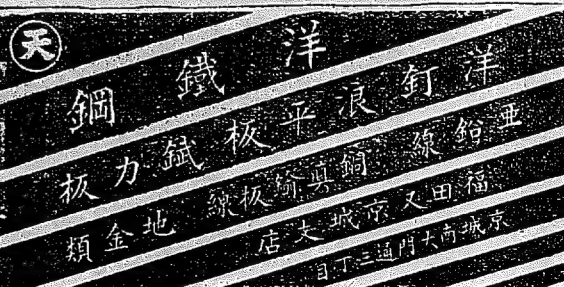 天
洋鐵鋼
洋釘浪平板錻力板
亜鉛線銅真鍮板線地金類
福田又京城支店
京城南大門通三丁目